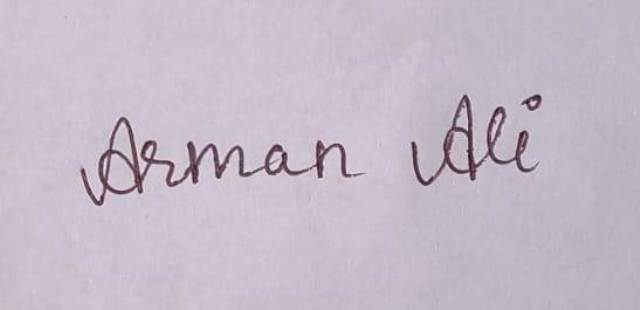 Arman Ali